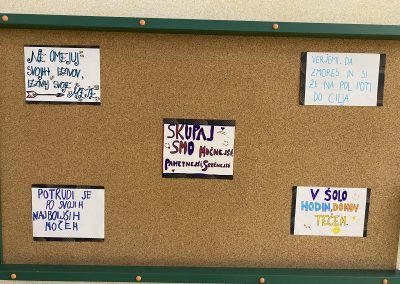 NE OMEJUJ
SVOJIH IZZIVOV,
IZZIVAJ SVOJE
MEJE
VERJEMI, DA
ZMOREŠ IN SI
ŽE NA POL POTI
DO CILJA
SKUPAJ
SMO MOČNEJŠI,
PAMETNEJŠI, SREČNEJŠI
POTRUDI SE
PO SVOJIH
NAJBOLJŠIH
MOČEH
V ŠOLO
HODIM, DOMOV
TEČEM.